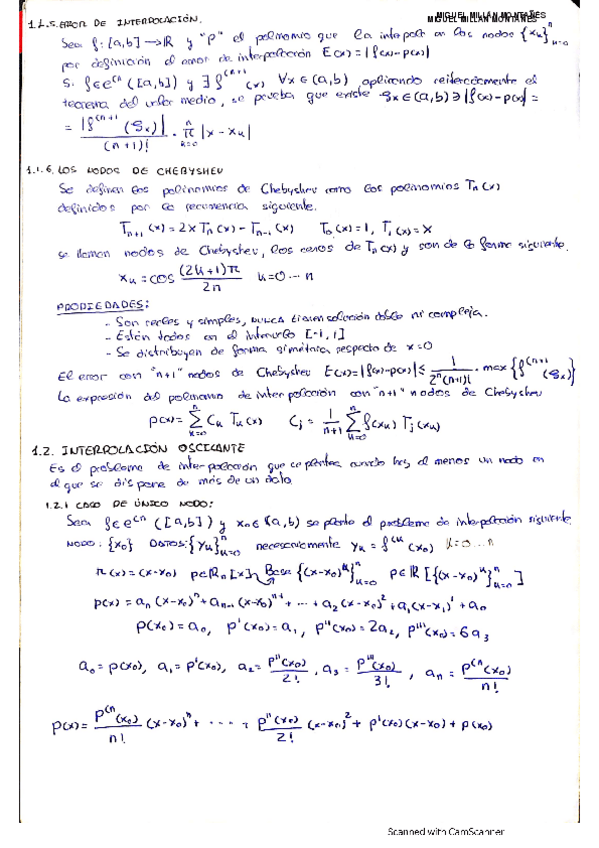 1.1.5. ERROR DE INTERPOLACIÓN.
MIGUEL MILLÁN MONTAÑÉS
Sea f: [a,b] → ℝ y "p" el polinomio que la interpola en los nodos {x_k}ⁿ_{k=0}
por definición el error de interpolación E(x) = |f(x)-p(x)|
Si f ∈ C^(n ([a,b]) y ∃ f^(n+1 (x) ∀x ∈ (a,b) aplicando reiteradamente el
teorema del valor medio, se prueba que existe ξx ∈ (a,b) ∋ |f(x)-p(x)| =
= |f^(n+1 (ξx)| / (n+1)! · ⁿπ_{k=0} |x-x_k|
1.1.6. LOS NODOS DE CHEBYSHEV
Se definen los polinomios de Chebyshev como los polinomios Tn(x)
definidos por la recurrencia siguiente.
T_{n+1}(x) = 2x Tn(x) - T_{n-1}(x) T₀(x) = 1, T₁(x) = x
se llaman nodos de Chebyshev, los ceros de Tn(x) y son de la forma siguiente.
x_k = cos (2k+1)π / 2n k=0 ... n
PROPIEDADES:
- Son reales y simples, NUNCA tienen solución doble ni compleja.
- Están todos en el intervalo [-1, 1]
- Se distribuyen de forma simétrica respecto de x=0
El error con "n+1" nodos de Chebyshev E(x) = |f(x)-p(x)| ≤ 1 / 2ⁿ(n+1)! · max {f^(n+1 (ξx)}
La expresión del polinomio de interpolación con "n+1" nodos de Chebyshev
p(x) = Σⁿ_{k=0} C_k T_k(x) C_j = 1/(n+1) Σⁿ_{k=0} f(x_k) T_j(x_k)
1.2. INTERPOLACIÓN OSCULANTE
Es el problema de interpolación que se plantea cuando hay al menos un nodo en
el que se dispone de más de un dato.
1.2.1 CASO DE ÚNICO NODO:
Sea f ∈ C^(n ([a,b]) y x₀ ∈ (a,b) se plantea el problema de interpolación siguiente
NODO: {x₀} DATOS: {y_k}ⁿ_{k=0} necesariamente y_k = f^(k (x₀) k=0 ... n
π(x) = (x-x₀) p ∈ ℝn[x] Base {(x-x₀)^k}ⁿ_{k=0} p ∈ ℝ[{(x-x₀)^k}ⁿ_{k=0}]
p(x) = an(x-x₀)ⁿ + a_{n-1}(x-x₀)^{n-1} + ... + a₂(x-x₀)² + a₁(x-x₁)¹ + a₀
p(x₀) = a₀, p'(x₀) = a₁, p''(x₀) = 2a₂, p'''(x₀) = 6a₃
a₀ = p(x₀), a₁ = p'(x₀), a₂ = p''(x₀)/2!, a₃ = p'''(x₀)/3!, an = p^(n (x₀)/n!
p(x) = p^(n (x₀)/n! (x-x₀)ⁿ + ... + p''(x₀)/2! (x-x₀)² + p'(x₀)(x-x₀) + p(x₀)
Scanned with CamScanner